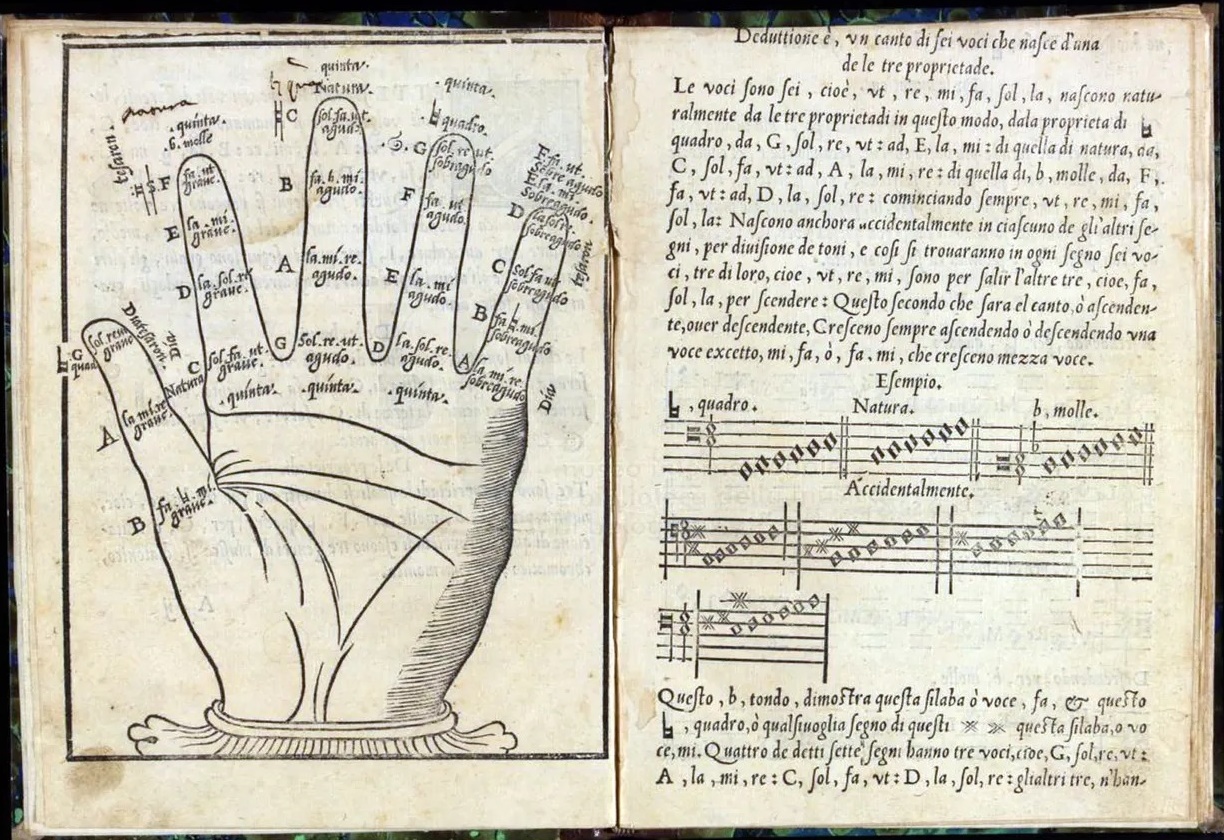 quinta.
Natura.
C
sol.fa.ut.
agud.
quinta.
b. molle
F
fa. ut
graue.
E
la. mi.
graue.
D
la. sol. re
graue.
C
sol. fa. ut.
graue.
Natura
. quinta.
Diatessaron.
Dia
G
sol. re ut
graue
A
la mi. re
graue.
B
fa. ♮. mi.
graue.
B
fa. b. mi.
agudo.
A
la. mi. re.
agudo.
G
Sol. re. ut.
agudo.
quinta.
. quinta.
♮ quadro.
G
sol. re ut.
sobragudo
F
fa. ut
agudo.
E
la. mi
agudo.
D
la. sol. re.
agudo.
. quinta.
F fa. ut.
sobre agudo
E la. mi.
Sobreagudo.
D
la sol re.
sobreagudo
C
Sol fa ut
sobreagudo
B
fa ♮. mi.
sobreagudo
A
la. mi. re.
sobreagudo
Dia
Deduttione è, vn canto di sei voci che nasce d'una
de le tre proprietade.
Le voci sono sei, cioè, vt, re, mi, fa, sol, la, nascono natu-
ralmente da le tre proprietadi in questo modo, dala proprieta di ♮
quadro, da, G, sol, re, vt: ad, E, la, mi: di quella di natura, da,
C, sol, fa, vt: ad, A, la, mi, re: di quella di, b, molle, da, F,
fa, vt: ad, D, la, sol, re: cominciando sempre, vt, re, mi, fa,
sol, la: Nascono anchora accidentalmente in ciascuno de gl'altri se-
gni, per diuisione de toni, e cosi si trouaranno in ogni segno sei vo-
ci, tre di loro, cioe, vt, re, mi, sono per salir l'altre tre, cioe, fa,
sol, la, per scendere: Questo secondo che sara el canto, ò ascenden-
te, ouer descendente, Cresceno sempre ascendendo ò descendendo vna
voce excetto, mi, fa, ò, fa, mi, che cresceno mezza voce.
Esempio.
♮, quadro. Natura. b, molle.
Accidentalmente.
Questo, b, tondo, dimostra questa silaba ò voce, fa, & questo
♮, quadro, ò qualsiuoglia segno di questi ※ ※ questa silaba, o vo
ce, mi. Quattro de detti sette segni hanno tre voci, cioe, G, sol, re, vt:
A, la, mi, re: C, sol, fa, vt: D, la, sol, re: gli altri tre, n'han-